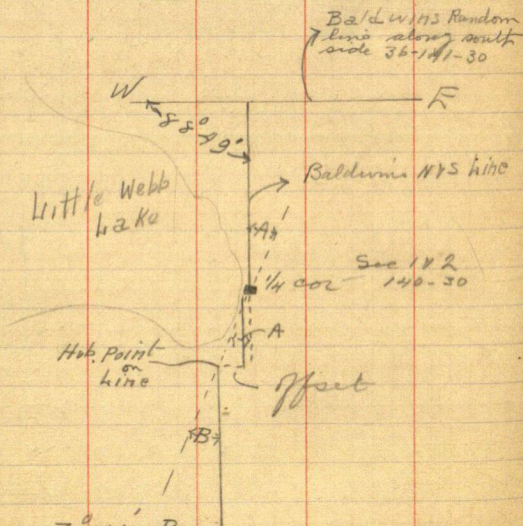 Baldwins Random
line along south
side 36-141-30
W
E
88° 49'
Baldwins N&S Line
Little Webb
Lake
A'
1/4 cor
Sec 1&2
140-30
A
Hub. Point
on
Line
offset
B